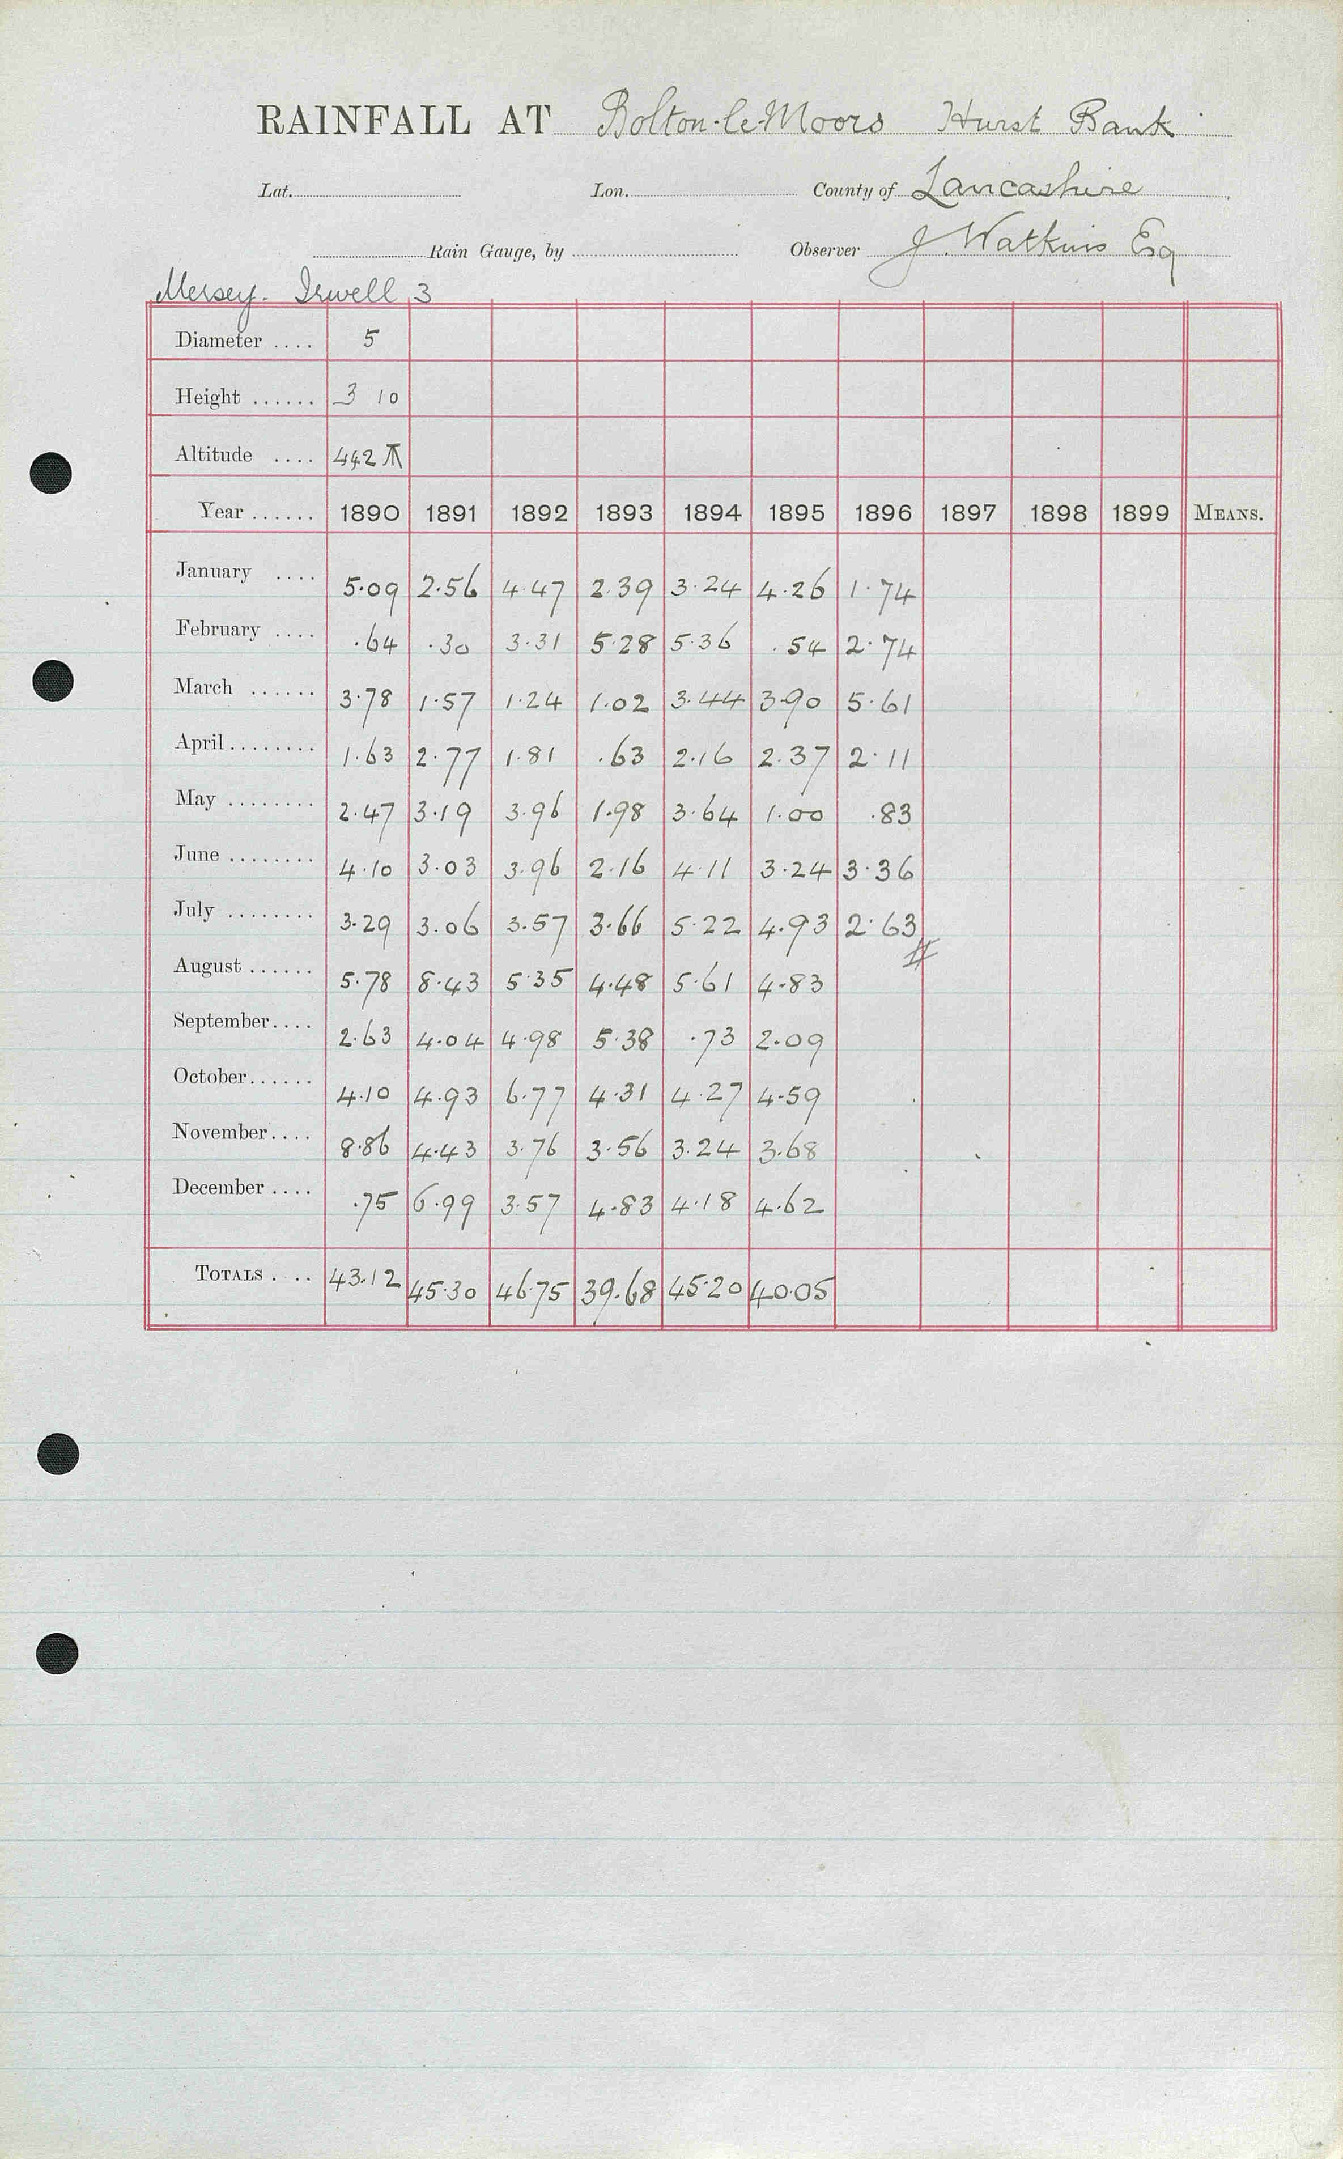 RAINFALL AT Bolton-le-Moors Hurst Bank
Lat. Lon. County of Lancashire
Rain Gauge, by Observer J. Watkins Esq
Mersey. Irwell 3
Diameter .... 5
Height ...... 3 10
Altitude .... 442
Year ...... 1890 1891 1892 1893 1894 1895 1896 1897 1898 1899 MEANS.
January .... 5.09 2.56 4.47 2.39 3.24 4.26 1.74
February .... .64 .30 3.31 5.28 5.36 .54 2.74
March ...... 3.78 1.57 1.24 1.02 3.44 3.90 5.61
April ........ 1.63 2.77 1.81 .63 2.16 2.37 2.11
May ........ 2.47 3.19 3.96 1.98 3.64 1.00 .83
June ........ 4.10 3.03 3.96 2.16 4.11 3.24 3.36
July ........ 3.29 3.06 3.57 3.66 5.22 4.93 2.63
August ...... 5.78 8.43 5.35 4.48 5.61 4.83
September.... 2.63 4.04 4.98 5.38 .73 2.09
October...... 4.10 4.93 6.77 4.31 4.27 4.59
November.... 8.86 4.43 3.76 3.56 3.24 3.68
December .... .75 6.99 3.57 4.83 4.18 4.62
TOTALS . .. 43.12 45.30 46.75 39.68 45.20 40.05